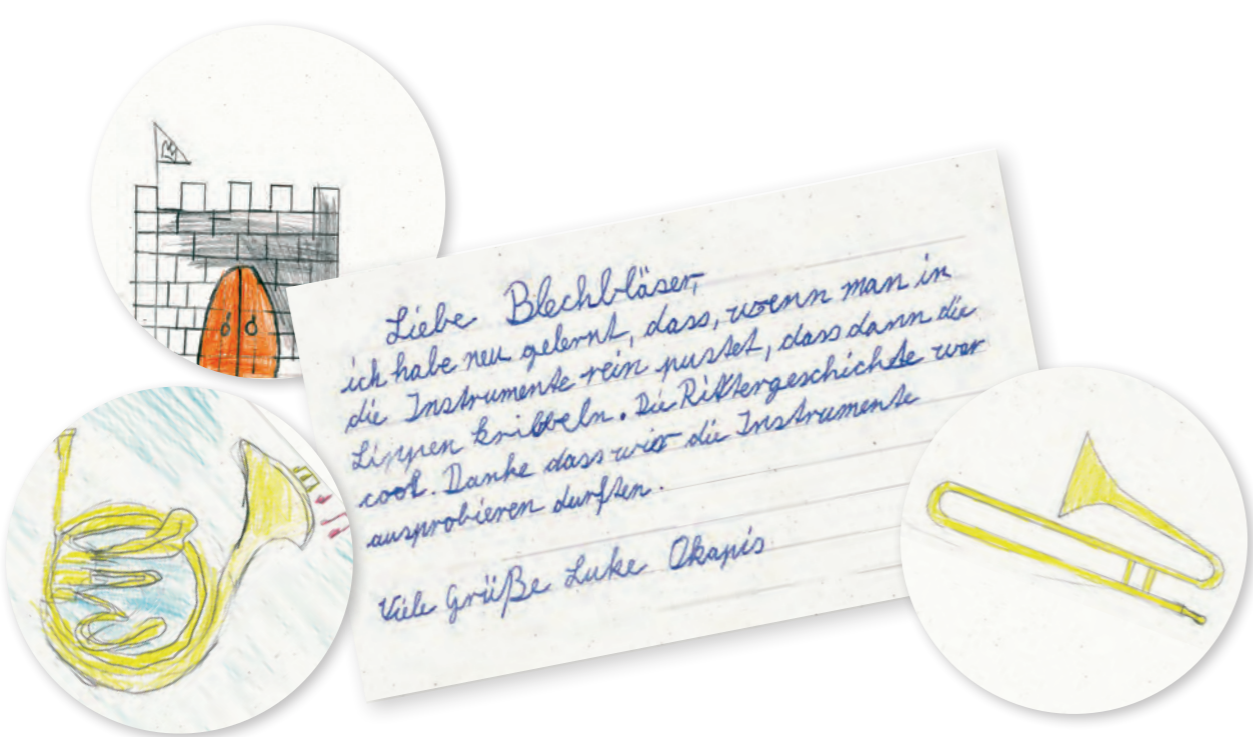 Liebe Blechbläser,
ich habe neu gelernt, dass, wenn man in
die Instrumente rein pustet, dass dann die
Lippen kribbeln. Die Rittergeschichte war
cool. Danke dass wir die Instrumente
ausprobieren durften.
Viele Grüße Luke Okapis